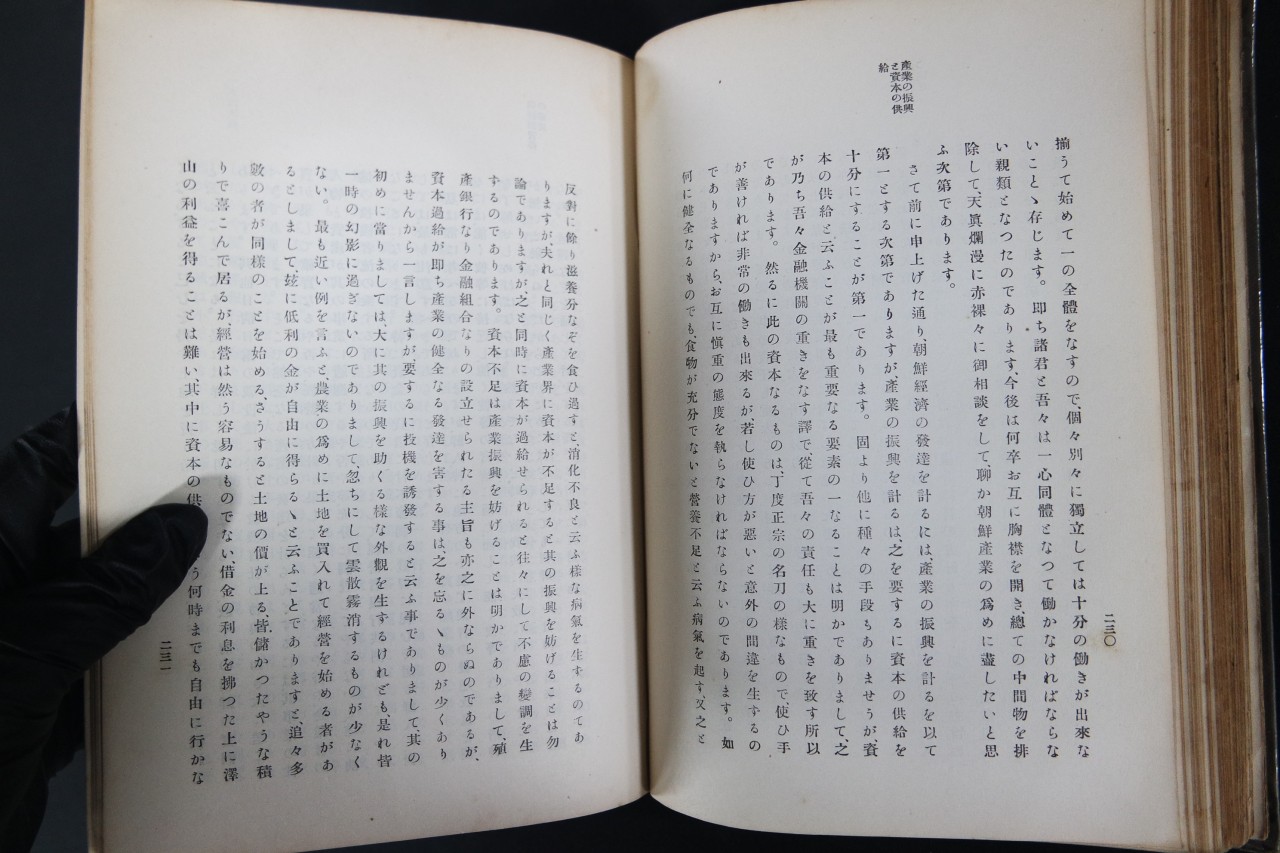 二三〇
揃うて始めて一の全體をなすので、個々別々に獨立しては十分の働きが出來な
いことゝ存じます。即ち諸君と吾々は一心同體となつて働かなければならな
い親類となつたのであります、今後は何卒お互に胸襟を開き、總ての中間物を排
除して、天眞爛漫に赤裸々に御相談をして、聊か朝鮮產業の爲めに盡したいと思
ふ次第であります。
產業の振興
と資本の供
給
さて前に申上げた通り、朝鮮經濟の發達を計るには、產業の振興を計るを以て
第一とする次第でありますが、產業の振興を計るは、之を要するに資本の供給を
十分にすることが第一であります。固より他に種々の手段もありませうが、資
本の供給と云ふことが最も重要なる要素の一なることは明かでありまして、之
が乃ち吾々金融機關の重きをなす譯で、從て吾々の責任も大に重きを致す所以
であります。然るに此の資本なるものは、丁度正宗の名刀の樣なもので、使ひ手
が善ければ非常の働きも出來るが若し使ひ方が惡いと意外の間違を生ずるの
でありますから、お互に愼重の態度を執らなければならないのであります。如
何に健全なるものでも、食物が充分でないと營養不足と云ふ病氣を起す、又之と
反對に餘り滋養分なぞを食ひ過すと、消化不良と云ふ樣な病氣を生ずるのであ
りますが夫れと同じく產業界に資本が不足すると其の振興を妨げることは勿
論でありますが、之と同時に資本が過給せられると往々にして不慮の變調を生
ずるのであります。資本不足は產業振興を妨げることは明かでありまして、殖
產銀行なり金融組合なりの設立せられたる主旨も亦之に外ならぬのであるが、
資本過給が即ち產業の健全なる發達を害する事は、之を忘るゝものが少くあり
ませんから一言しますが、要するに投機を誘發すると云ふ事でありまして、其の
初めに當りましては、大に其の振興を助くる樣な外觀を生ずるけれども、是れ皆
一時の幻影に過ぎないのでありまして、忽ちにして雲散霧消するものが少なく
ない。最も近い例を言ふと、農業の爲めに土地を買入れて經營を始める者があ
るとしまして、玆に低利の金が自由に得らるゝと云ふことでありますと、追々多
數の者が同樣のことを始める、さうすると土地の價が上る、皆儲かつたやうな積
りで喜こんで居るが、經營は然う容易なものでない、借金の利息を拂つた上に澤
山の利益を得ることは難い、其中に資本の供う何時までも自由に行かな
二三一